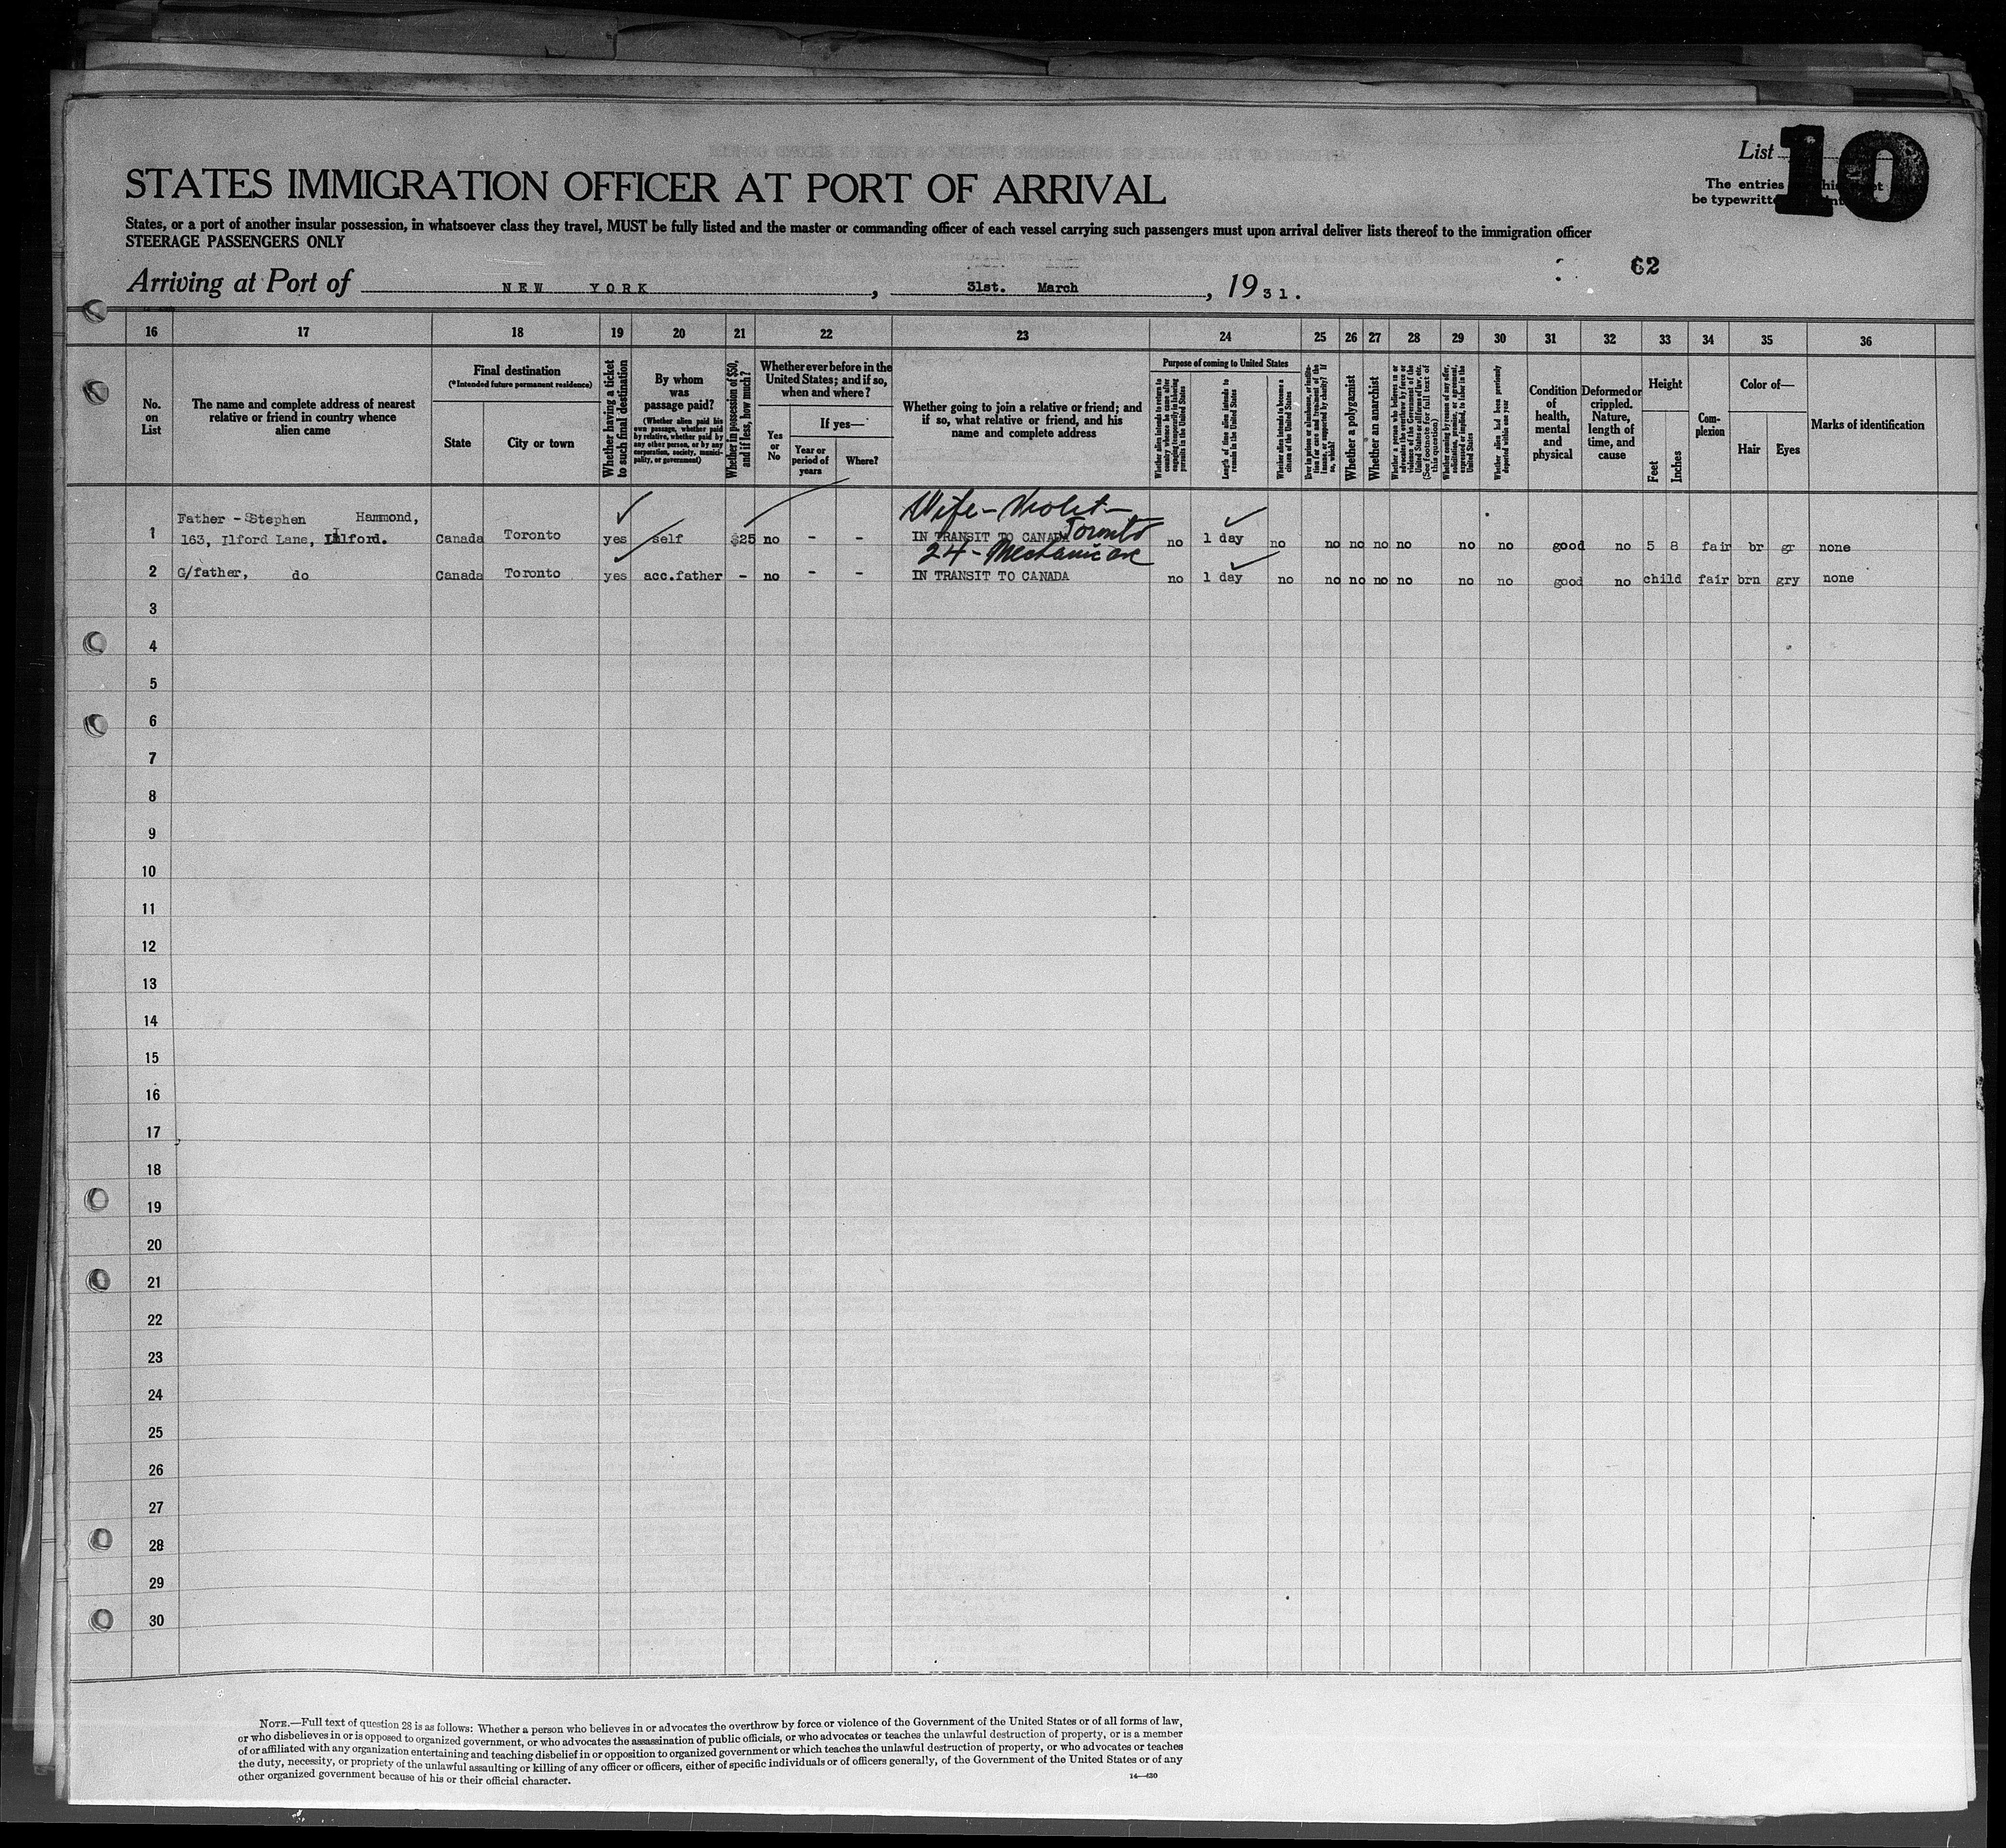 List 10
The entries
be typewritte
STATES IMMIGRATION OFFICER AT PORT OF ARRIVAL
States, or a port of another insular possession, in whatsoever class they travel, MUST be fully listed and the master or commanding officer of each vessel carrying such passengers must upon arrival deliver lists thereof to the immigration officer
STEERAGE PASSENGERS ONLY
62
Arriving at Port of NEW YORK, 31st. March, 1931.
16 17 18 19 20 21 22 23 24 25 26 27 28 29 30 31 32 33 34 35 36
No. on List
The name and complete address of nearest relative or friend in country whence alien came
Final destination
(*Intended future permanent residence)
State
City or town
Whether having a ticket to such final destination
By whom was passage paid?
(Whether alien paid his own passage, whether paid by relative, whether paid by any other person, or by any corporation, society, municipality, or government)
Whether in possession of $50, and if less, how much?
Whether ever before in the United States; and if so, when and where?
Yes or No
If yes—
Year or period of years
Where?
Whether going to join a relative or friend; and if so, what relative or friend, and his name and complete address
Purpose of coming to United States
Whether alien intends to return to country whence he came after engaging temporarily in laboring pursuits in the United States
Length of time alien intends to remain in the United States
Whether alien intends to become a citizen of the United States
Ever in prison or almshouse, or institution for care and treatment of the insane, or supported by charity? If so, which?
Whether a polygamist
Whether an anarchist
Whether a person who believes in or advocates the overthrow by force or violence of the Government of the United States or all forms of law, etc. (See footnote for full text of this question)
Whether coming by reason of any offer, solicitation, promise, or agreement, expressed or implied, to labor in the United States
Whether alien had been previously deported within one year
Condition of health, mental and physical
Deformed or crippled. Nature, length of time, and cause
Height
Feet
Inches
Complexion
Color of—
Hair
Eyes
Marks of identification
Wife - Violet -
Father - Stephen Hammond,
Toronto
1 163, Ilford Lane, Ilford. Canada Toronto yes self $25 no - - IN TRANSIT TO CANADA no 1 day no no no no no no no good no 5 8 fair br gr none
24 - Mechanic
2 G/father, do Canada Toronto yes acc.father - no - - IN TRANSIT TO CANADA no 1 day no no no no no no no good no child fair brn gry none
3
4
5
6
7
8
9
10
11
12
13
14
15
16
17
18
19
20
21
22
23
24
25
26
27
28
29
30
NOTE.—Full text of question 28 is as follows: Whether a person who believes in or advocates the overthrow by force or violence of the Government of the United States or of all forms of law,
or who disbelieves in or is opposed to organized government, or who advocates the assassination of public officials, or who advocates or teaches the unlawful destruction of property, or is a member
of or affiliated with any organization entertaining and teaching disbelief in or opposition to organized government or which teaches the unlawful destruction of property, or who advocates or teaches
the duty, necessity, or propriety of the unlawful assaulting or killing of any officer or officers, either of specific individuals or of officers generally, of the Government of the United States or of any
other organized government because of his or their official character.
14—630